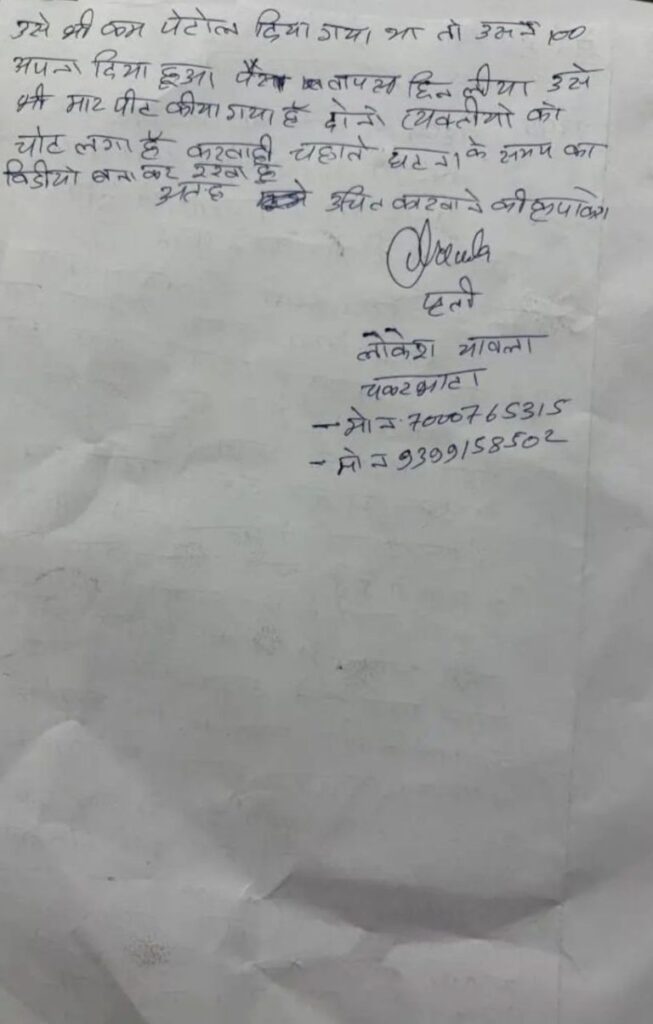 उसे भी कम पेटोल दिया गया था तो उसने 100
अपना दिया हूआ पैसा वापस छिन लीया उसे
भी मार पीट कीया गया है दोनो व्यक्तीयो को
चोट लगा है करवाही चहाते घटना के समय का
विडीयो बना कर रखा है
अतह उचित करवाने की कृपा करे
प्रार्ती
लोकेश यावला
चकरभाटा
- मो न. 7000765315
- मो न 9399158502